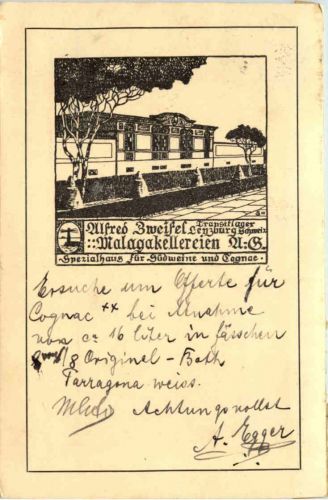 Alfred Zweifel Transitlager
Lenzburg Schweiz
::Malagakellereien A.-G.
·Spezialhaus für Südweine und Cognac·
Ersuche um Offerte für
Cognac ** bei Abnahme
von ca 16 Liter in Fässchen
1/8 Original - Both
Tarragona weiss.
Achtungsvollst
A. Egger